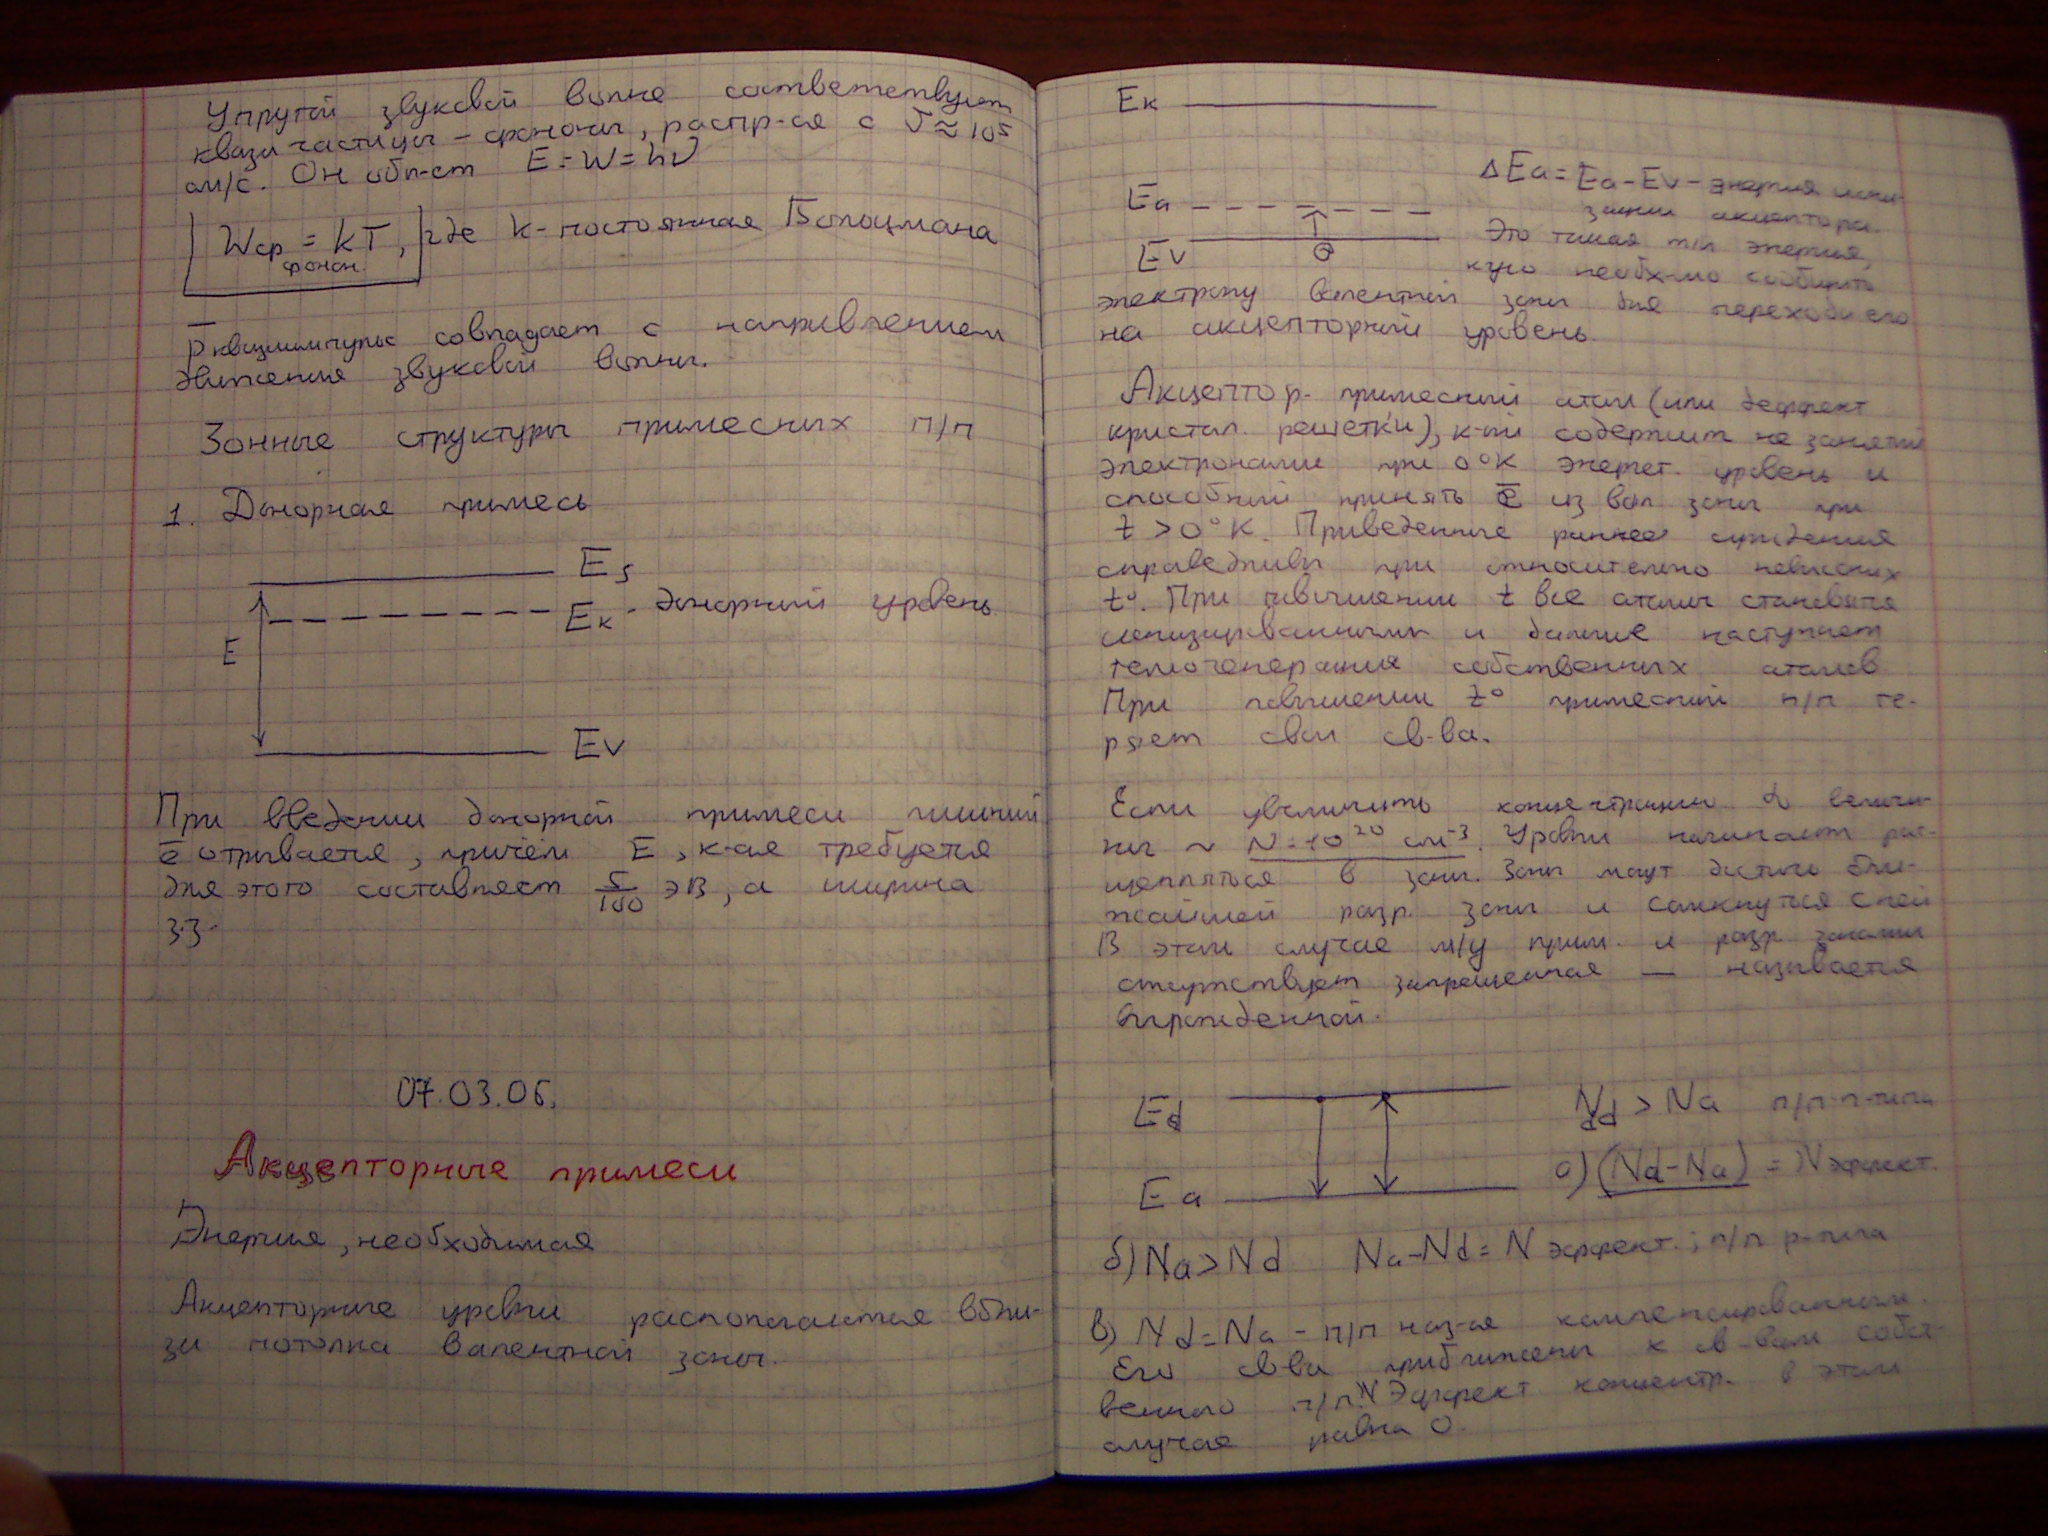 Упругой звуковой волне соответствуют
квазичастицы - фононы, распр-ся с v ≈ 10⁵
см/с. Он обл-ет E = W = hν
Wср = kT, где k - постоянная Больцмана
фонон.
p̅ квазиимпульс совпадает с направлением
движения звуковой волны.
Зонные структуры примесных п/п
1. Донорная примесь
Es
Eк - донорный уровень
E
Ev
При введении донорной примеси лишний
e̅ отрывается, причём E, к-ая требуется
для этого составляет 5/100 эВ, а ширина
З.З.
07.03.06.
Акцепторные примеси
Энергия, необходимая
Акцепторные уровни располагаются вбли-
зи потолка валентной зоны.
Eк
Ea
Ev
ΔEa = Ea - Ev - энергия иони-
зации акцептора.
Это такая энергия,
кую необх-мо сообщить
электрону валентной зоны для перехода его
на акцепторный уровень.
Акцептор - примесный атом (или деффект
кристал. решетки), к-ый содержит не занятый
электронами при 0°K энергет. уровень и
способный принять e̅ из вал зоны при
t > 0°K. Приведенные раннее суждения
справедливы при относительно невысоких
t°. При повышении t все атомы становятся
ионизированными и дальше наступает
термогенерация собственных атомов
При повышении t° примесный п/п те-
ряет свои св-ва.
Если увеличить концентрации до величи-
ны ~ N = 10²⁰ см⁻³. Уровни начинают рас-
щепляться в зоны. Зоны могут достичь бли-
жайшей разр. зоны и сомкнуться с ней
В этом случае м/у прим. и разр зонами
отсутствует запрещенная — называется
вырожденной.
Ed
Ea
Nd > Na п/п n-типа
а) (Nd - Na) = N эффект.
б) Na > Nd Na - Nd = N эффект.; п/п p-типа
в) Nd = Na - п/п наз-ся компенсированным.
Его св-ва приближены к св-вам собст-
венного п/п. N Эффект концентр. в этом
случае равна 0.